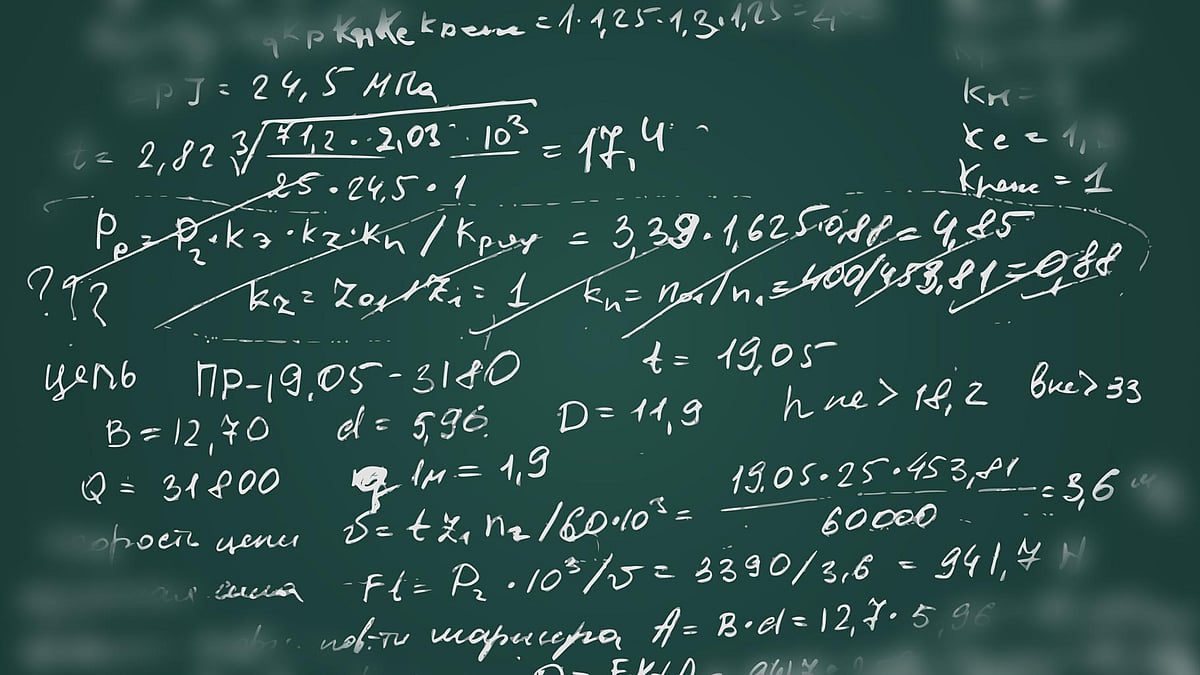 Kp Kн Ke Kреж = 1·1,25·1,3·1,25 =
p] = 24,5 МПа
Kн =
t = 2,82 ∛(71,2·2,03·10³ / 25·24,5·1) = 17,4
Ke = 1,
Kреж = 1
Pp = P₂·Kэ·Kz·Kn / Kреж = 3,39·1,625·0,88 = 4,85
???
Kz = Z₀₁/Z₁ = 1 Kn = n₀₁/n₁ = 400/453,81 = 0,88
цепь ПР-19,05-3180 t = 19,05
B = 12,70 d = 5,96 D = 11,9 h не > 18,2 b не > 33
Q = 31800 q 1м = 1,9
скорость цепи v = t z₁ n₂ /60·10³ = 19,05·25·453,81 / 60000 = 3,6
сила Ft = P₂·10³/v = 3390/3,6 = 941,7 Н
пов-ти шарнира A = B·d = 12,7·5,96